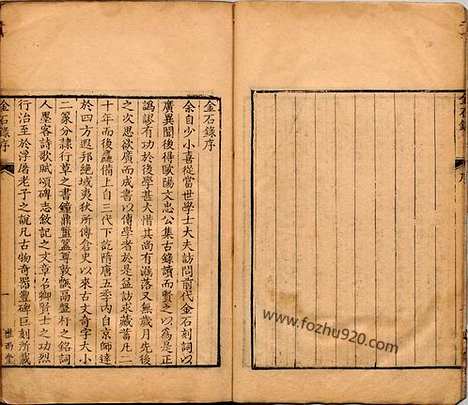 金石錄序
余自少小喜從當世學士大夫訪問前代金石刻詞以
廣異聞後得歐陽文忠公集古錄讀而賢之以爲是正
譌謬有功於後學甚大惜其尚有漏落又無歲月先後
之次思欲廣而成書以傳學者於是益訪求藏蓄凡二
十年而後麤備上自三代下訖隋唐五季內自京師達
於四方遐邦絕域夷狄所傳倉史以來古文奇字大小
二篆分隸行草之書鐘鼎簠簋尊敦甗鬲盤杅之銘詞
人墨客詩歌賦頌碑志敘記之文章名卿賢士之功烈
行治至於浮屠老子之說凡古物奇器豐碑巨刻所載
金石錄序
一
雅雨堂
www.fozhu920.com